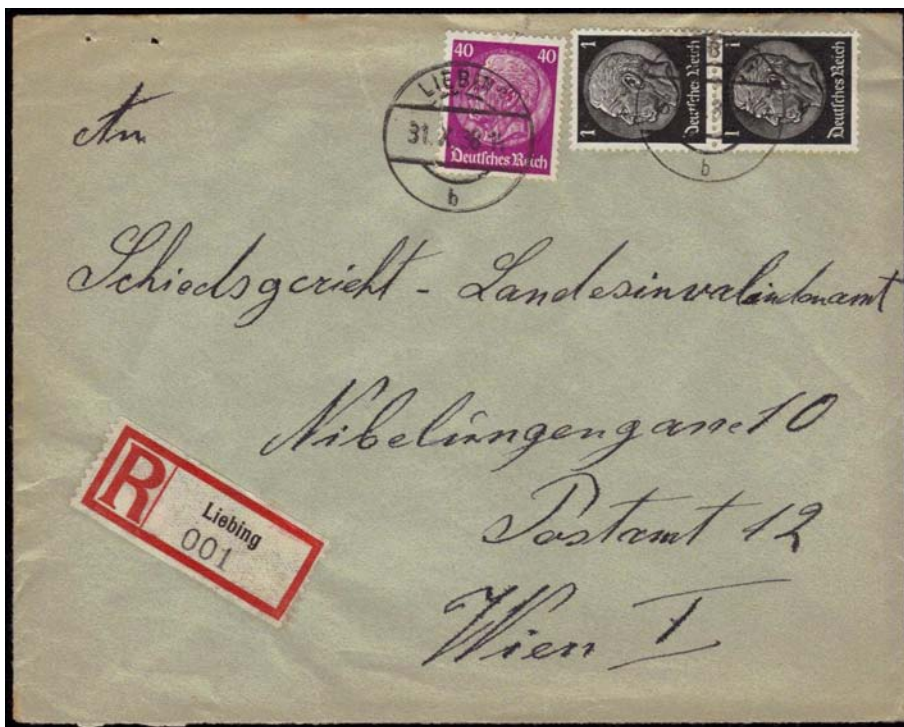 40 40
Deutsches Reich
1 1
Deutsches Reich
1 1
Deutsches Reich
31. X.
b
b
An
Schiedsgericht - Landesinvalindenamt
Nibelungengasse 10
Postamt 12
Wien I
R
Liebing
001